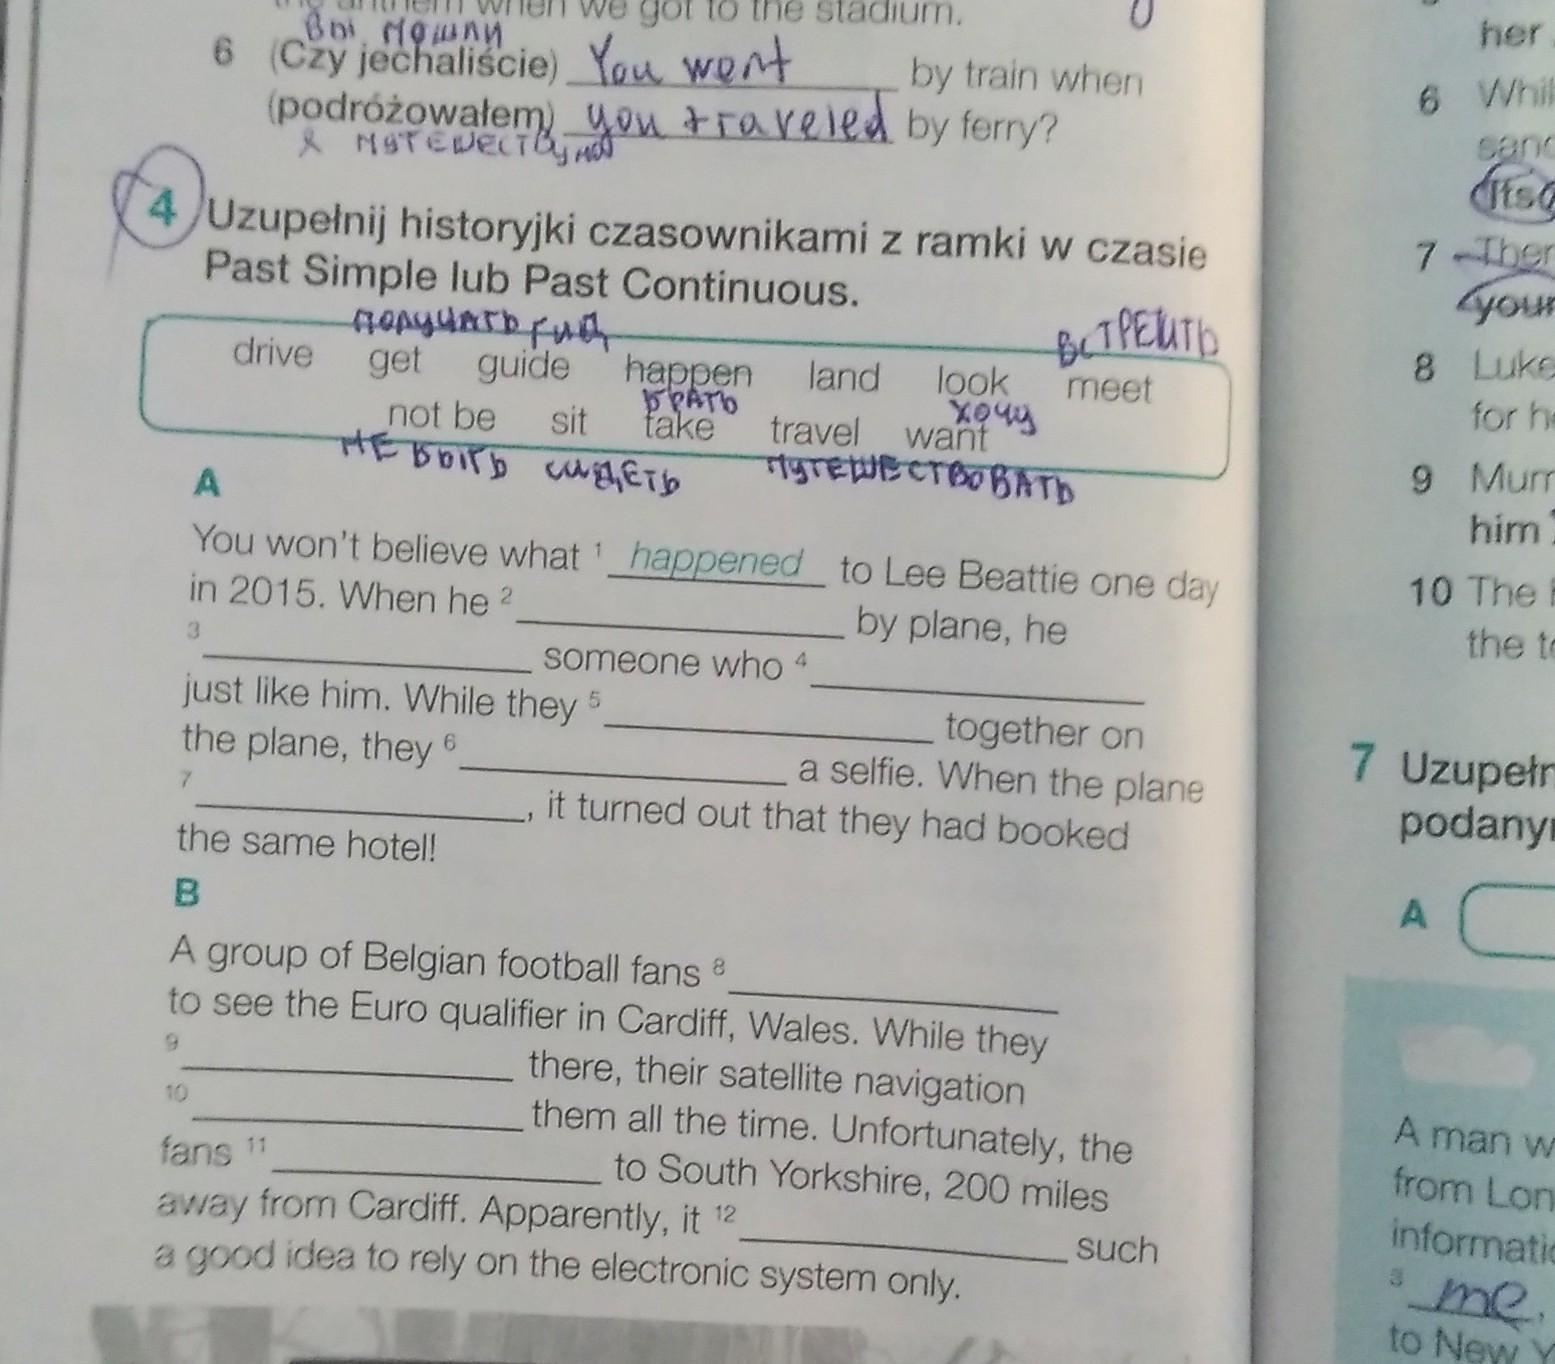 the anthem when we got to the stadium.
вы пошли
6 (Czy jechaliście) You went by train when
(podróżowałem) you traveled by ferry?
я
4 Uzupełnij historyjki czasownikami z ramki w czasie
Past Simple lub Past Continuous.
получать гид встретить
drive get guide happen land look meet
брать хочу
not be sit take travel want
не быть сидеть путешествовать
A
You won't believe what 1 happened to Lee Beattie one day
in 2015. When he 2 by plane, he
3 someone who 4
just like him. While they 5 together on
the plane, they 6 a selfie. When the plane
7 , it turned out that they had booked
the same hotel!
B
A group of Belgian football fans 8
to see the Euro qualifier in Cardiff, Wales. While they
9 there, their satellite navigation
10 them all the time. Unfortunately, the
fans 11 to South Yorkshire, 200 miles
away from Cardiff. Apparently, it 12 such
a good idea to rely on the electronic system only.
her
6
7
your
8 Luke
for
9
him
10 The
the
7
A
A man
from
3 me,
to New